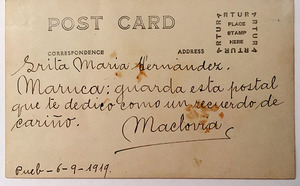 POST CARD
CORRESPONDENCE
ADDRESS
ARTURA
ARTURA
PLACE
STAMP
HERE
ARTURA
ARTURA
Srita Maria Hernández.
Maruca: guarda esta postal
que te dedico como un recuerdo de
cariño.
Maclovia
Pueb-6-9-1919.